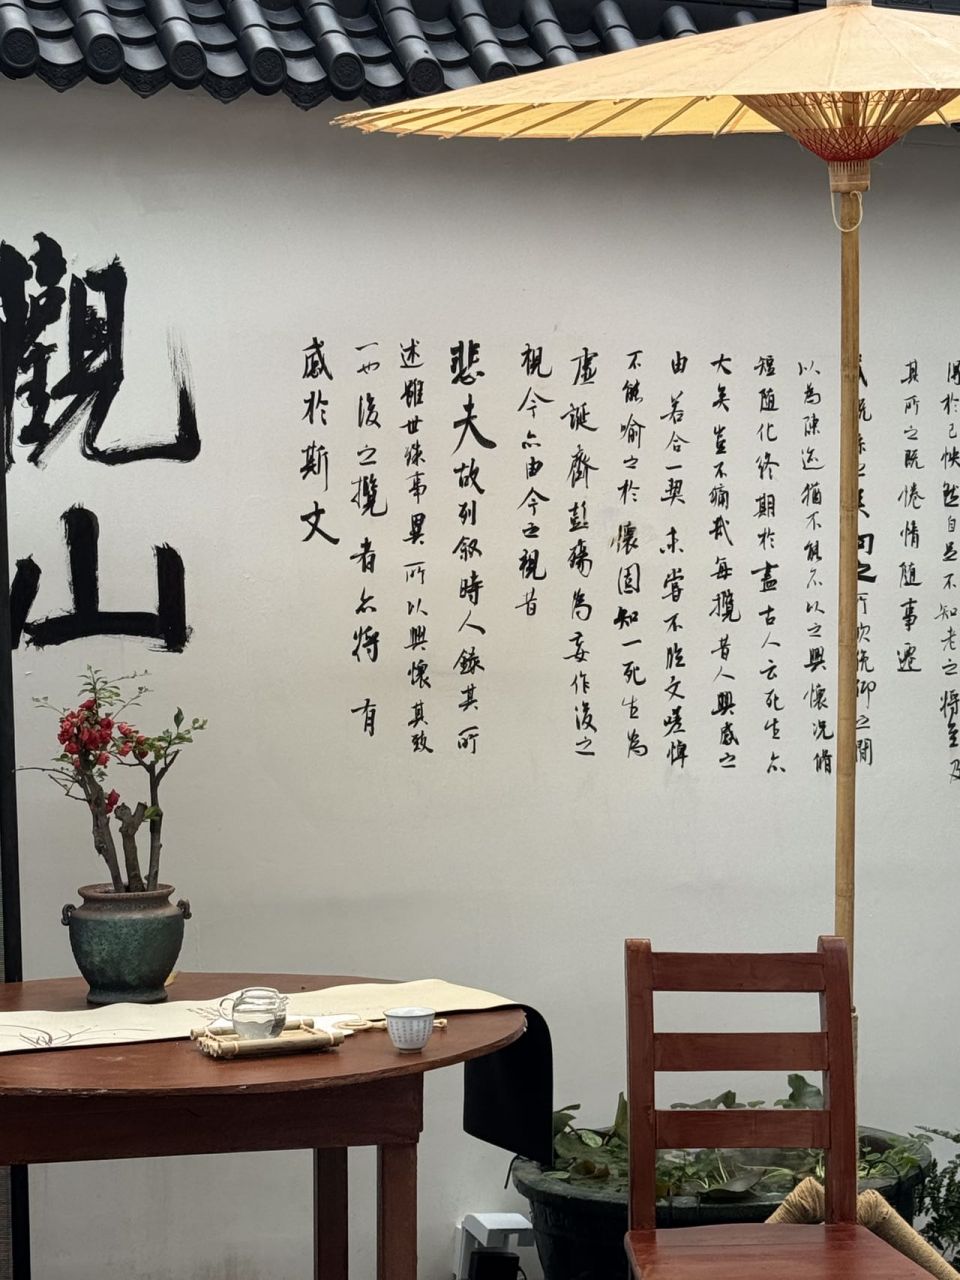 得於己怏然自足不知老之將至及
其所之既倦情隨事遷
感慨係之矣向之所欣俛仰之間
以為陳迹猶不能不以之興懷況脩
短隨化終期於盡古人云死生亦
大矣豈不痛哉每攬昔人興感之
由若合一契未嘗不臨文嗟悼
不能喻之於懷固知一死生為
虛誕齊彭殤為妄作後之
視今亦由今之視昔
悲夫故列敘時人錄其所
述雖世殊事異所以興懷其致
一也後之攬者亦將有
感於斯文
觀山